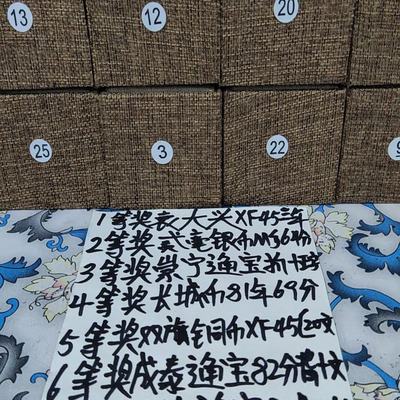 13 12 20
25 3 22 9
1等奖袁大兴XF45三年
2等奖贰毫银币MS64分
3等奖崇宁通宝折十
4等奖长城币81年69分
5等奖双旗铜币XF45 20文
6等奖咸泰通宝82分背十